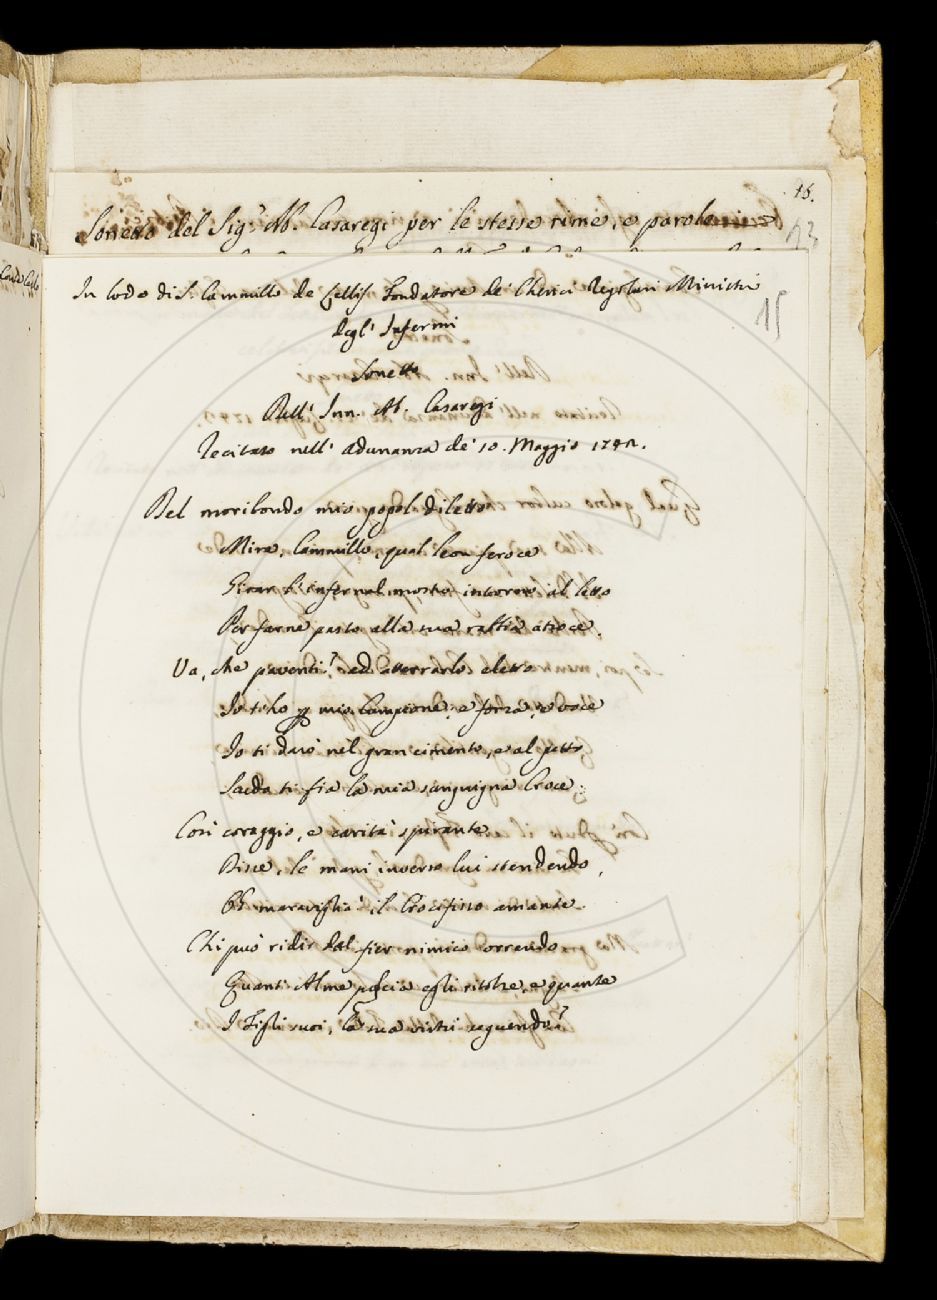 16.
Sonetto del Sig.r Ab. Casaregi per le stesse rime, e parole
13
Conte Carlo
In lode di S. Cammillo de Lellis Fondatore de' Cherici Regolari Ministri
15
degl' Infermi
Sonetto
Dell' Inn. Ab. Casaregi
Recitato nell' Adunanza de' 10. Maggio 1742.
Del moribondo mio popol diletto
Mira, Cammillo, qual leon feroce
Girar l' infernal mostro intorno al letto
Per farne pasto alla sua rabbia atroce.
Va, che paventi? ad atterrarlo eletto
Io t' ho p mio Campione; e forza, e voce
Io ti darò nel gran cimento, e al petto
Scudo ti fia la mia sanguigna Croce.
Così coraggio, e carità spirante
Disse, le mani inverso lui stendendo,
Oh maraviglia! il Crocifisso amante.
Chi può ridir dal fier nimico
Quant' Alme poscia egli ritolse, e quante
I Figli suoi, la sua virtù seguendo?